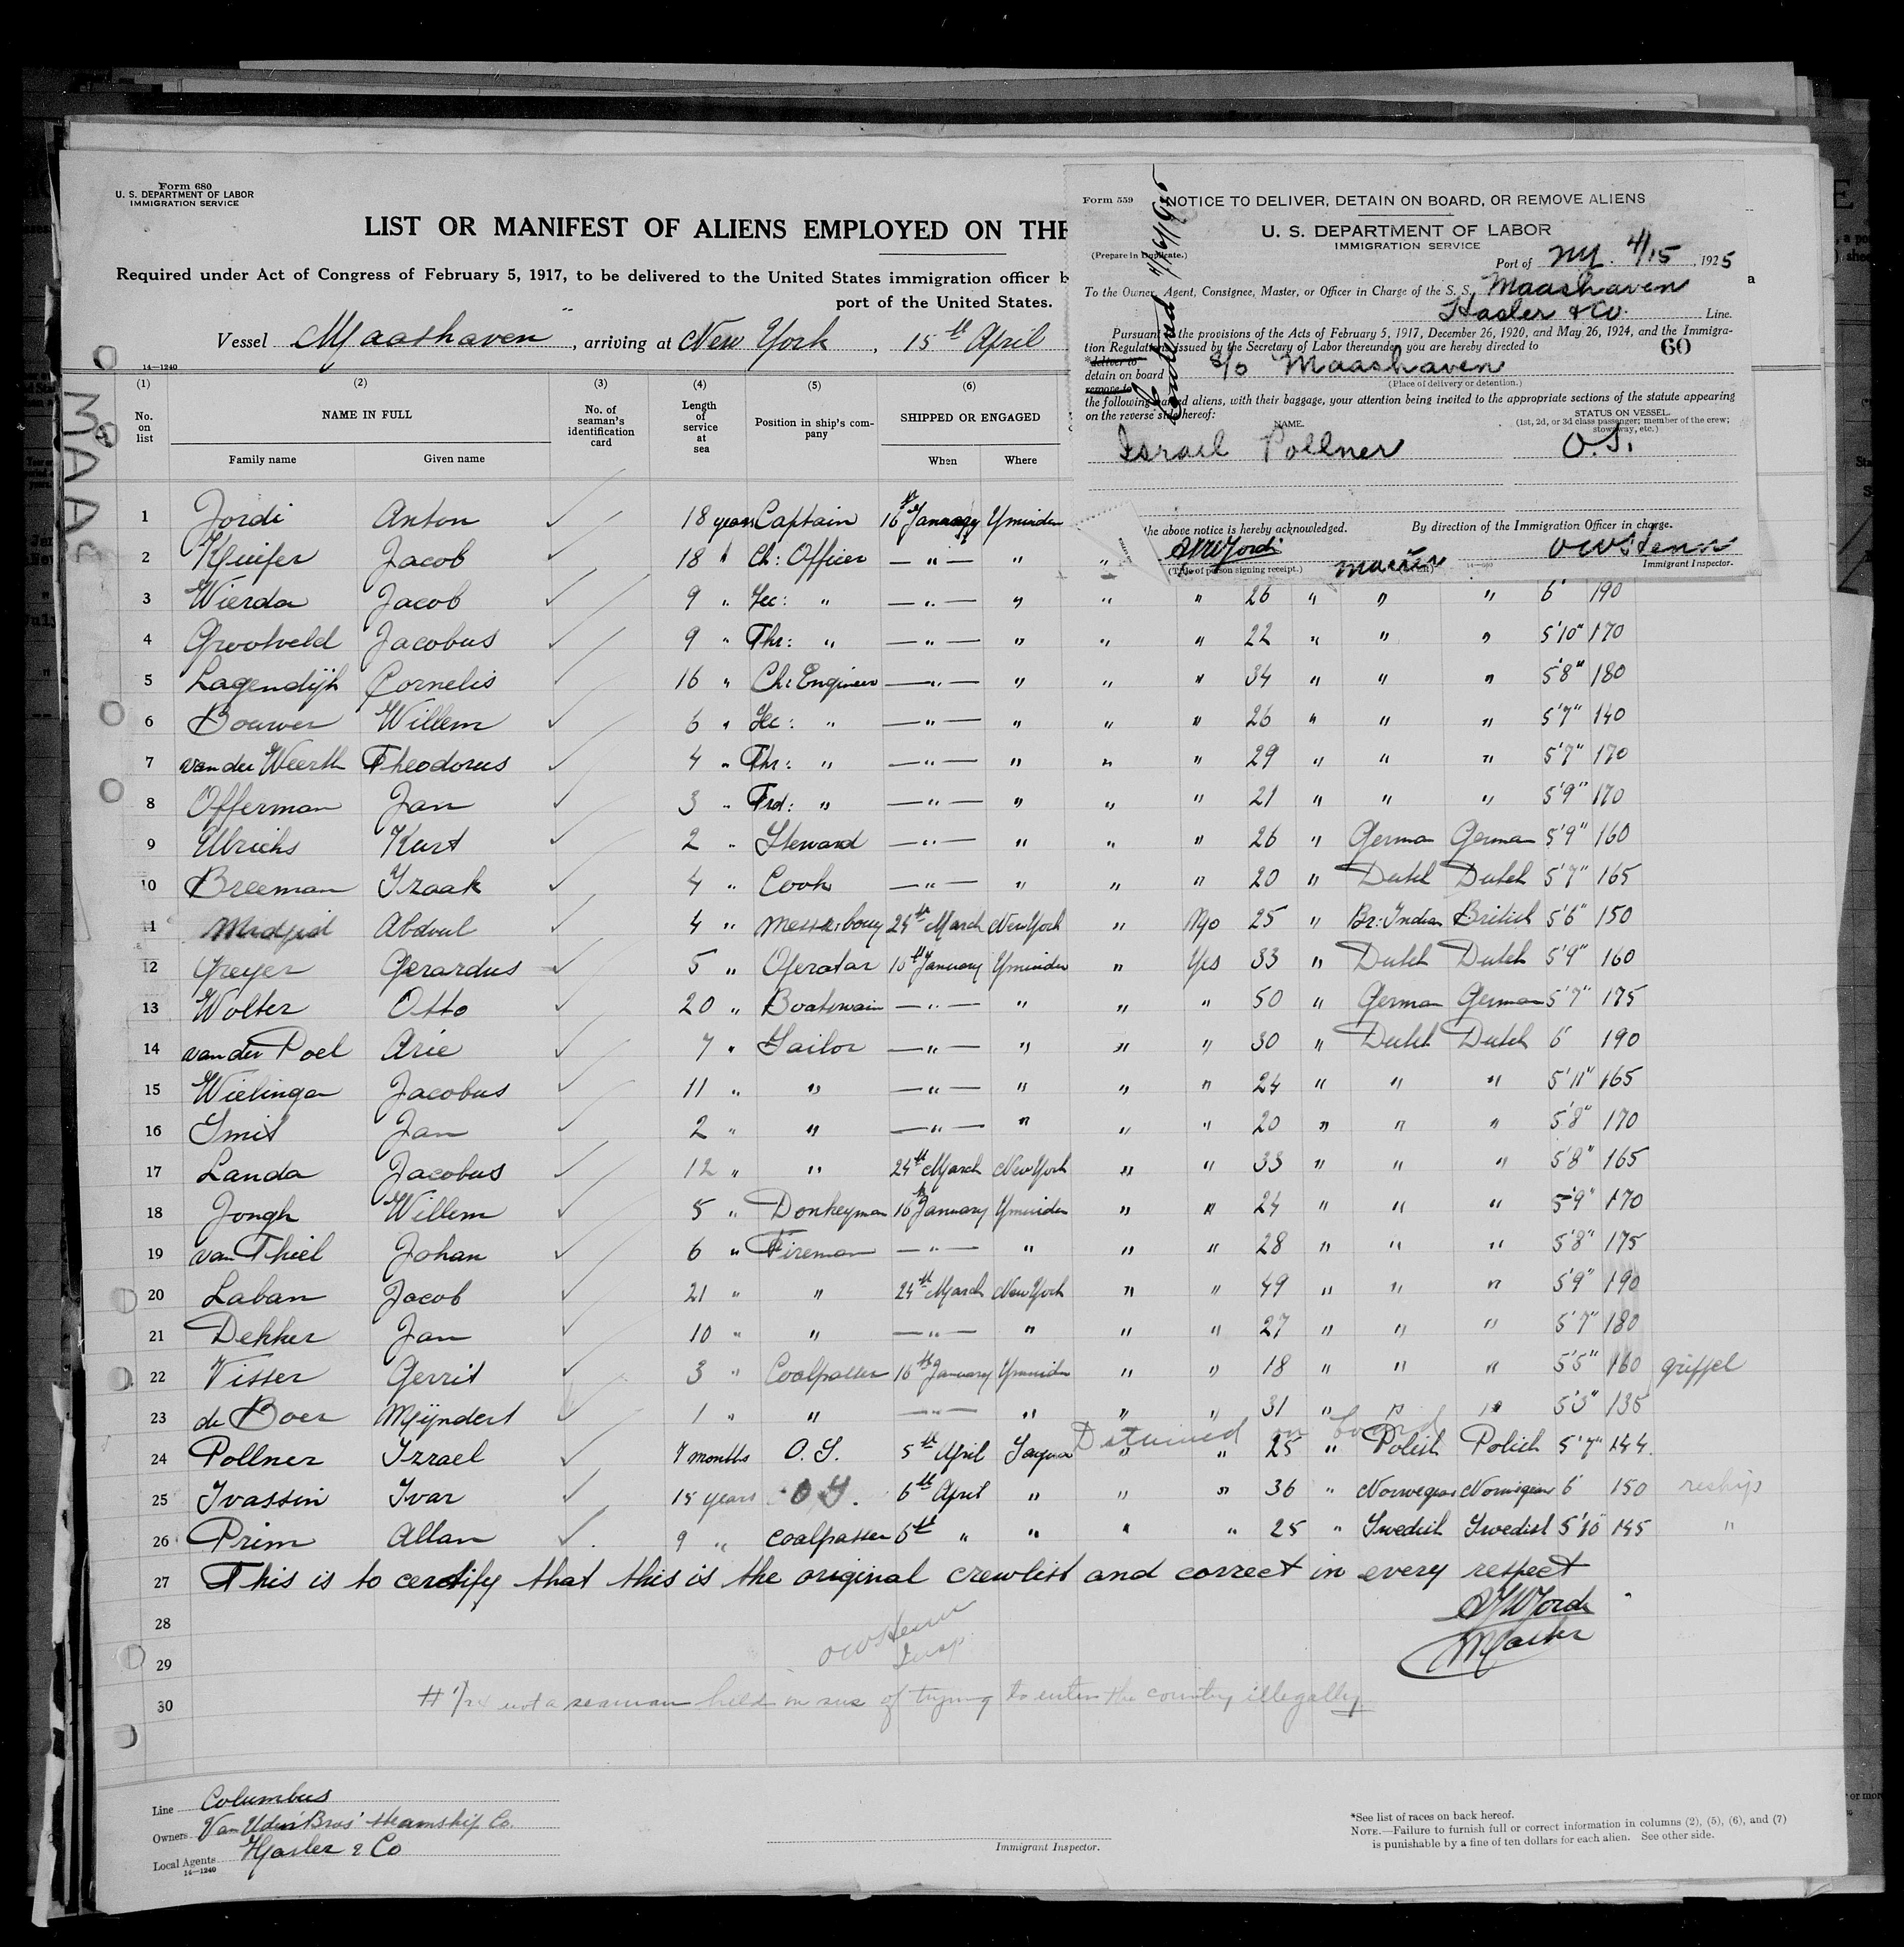 Form 680
U. S. DEPARTMENT OF LABOR
IMMIGRATION SERVICE
LIST OR MANIFEST OF ALIENS EMPLOYED ON THE
Required under Act of Congress of February 5, 1917, to be delivered to the United States immigration officer b
port of the United States.
Vessel Maashaven, arriving at New York, 15th April
14—1240
MAAS
Form 559
NOTICE TO DELIVER, DETAIN ON BOARD, OR REMOVE ALIENS
U. S. DEPARTMENT OF LABOR
IMMIGRATION SERVICE
(Prepare in Duplicate.)
Port of NY. 4/15, 1925
To the Owner, Agent, Consignee, Master, or Officer in Charge of the S. S. Maashaven
Hasler & Co. Line.
Pursuant to the provisions of the Acts of February 5, 1917, December 26, 1920, and May 26, 1924, and the Immigra-
tion Regulations issued by the Secretary of Labor thereunder, you are hereby directed to
60
*deliver to
detain on board S/S Maashaven
remove to
(Place of delivery or detention.)
the following named aliens, with their baggage, your attention being invited to the appropriate sections of the statute appearing
on the reverse side hereof:
NAME.
STATUS ON VESSEL.
(1st, 2d, or 3d class passenger; member of the crew; stowaway, etc.)
Israel Pollner O.S.
the above notice is hereby acknowledged.
By direction of the Immigration Officer in charge.
(Title of person signing receipt.) Master
Immigrant Inspector.
(1) (2) (3) (4) (5) (6)
No. on list
NAME IN FULL
Family name Given name
No. of seaman's identification card
Length of service at sea
Position in ship's com-pany
SHIPPED OR ENGAGED
When Where
1 Jordi Anton 18 years Captain 16th January Ymuiden
2 Kluifer Jacob 18 " Ch: Officer — " — " "
3 Wierda Jacob 9 " Sec: " — " — " " " 26 " " " 6' 190
4 Grootveld Jacobus 9 " Thr: " — " — " " " 22 " " " 5'10" 170
5 Lagendijk Cornelis 16 " Ch: Engineer — " — " " " 34 " " " 5'8" 180
6 Bouwer Willem 6 " Sec: " — " — " " " 26 " " " 5'7" 140
7 van der Weerth Theodorus 4 " Thr: " — " — " " " 29 " " " 5'7" 170
8 Offerman Jan 3 " Frd: " — " — " " " 21 " " " 5'9" 170
9 Ulrichs Kurt 2 " Steward — " — " " " 26 " German German 5'9" 160
10 Breeman Izaak 4 " Cook — " — " " " 20 " Dutch Dutch 5'7" 165
11 Midjid Abdoul 4 " Messrbouy 24th March New York " No 25 " Br: Indian British 5'6" 150
12 Greyer Gerardus 5 " Operator 16th January Ymuiden " Yes 33 " Dutch Dutch 5'9" 160
13 Wolter Otto 20 " Boatswain — " — " " " 50 " German German 5'7" 175
14 van der Poel Arie 7 " Sailor — " — " " " 30 " Dutch Dutch 6' 190
15 Wielinga Jacobus 11 " " — " — " " " 24 " " " 5'11" 165
16 Smit Jan 2 " " — " — " " " 20 " " " 5'8" 170
17 Landa Jacobus 12 " " 24th March New York " " 33 " " " 5'8" 165
18 Jongh Willem 5 " Donkeyman 16th January Ymuiden " " 24 " " " 5'9" 170
19 van Thiel Johan 6 " Fireman — " — " " " 28 " " " 5'8" 175
20 Laban Jacob 21 " " 24th March New York " " 49 " " " 5'9" 190
21 Dekker Jan 10 " " — " — " " " 27 " " " 5'7" 180
22 Visser Gerrit 3 " Coalpasser 16th January Ymuiden " " 18 " " " 5'5" 160 griffel
23 de Boer Mijndert 1 " " — " — " " " 31 " " " 5'3" 135
Detained on board
24 Pollner Izrael 7 months O. S. 5th April " " 25 " Polish Polish 5'7" 144
25 Ivassin Ivar 15 years O S. 6th April " " " 36 " Norwegian Norwegian 6' 150 reship
26 Prim Allan 9 " Coalpasser 6th " " " " 25 " Swedish Swedish 5'10" 145 "
27 This is to certify that this is the original crewlist and correct in every respect
28
Master
29
Insp
30 not a seaman held in sus of trying to enter the country illegally
Line Columbus
Owners Van Uden Bros' Steamship Co.
Local Agents Hasler & Co
14—1240
Immigrant Inspector.
*See list of races on back hereof.
NOTE.—Failure to furnish full or correct information in columns (2), (5), (6), and (7)
is punishable by a fine of ten dollars for each alien. See other side.